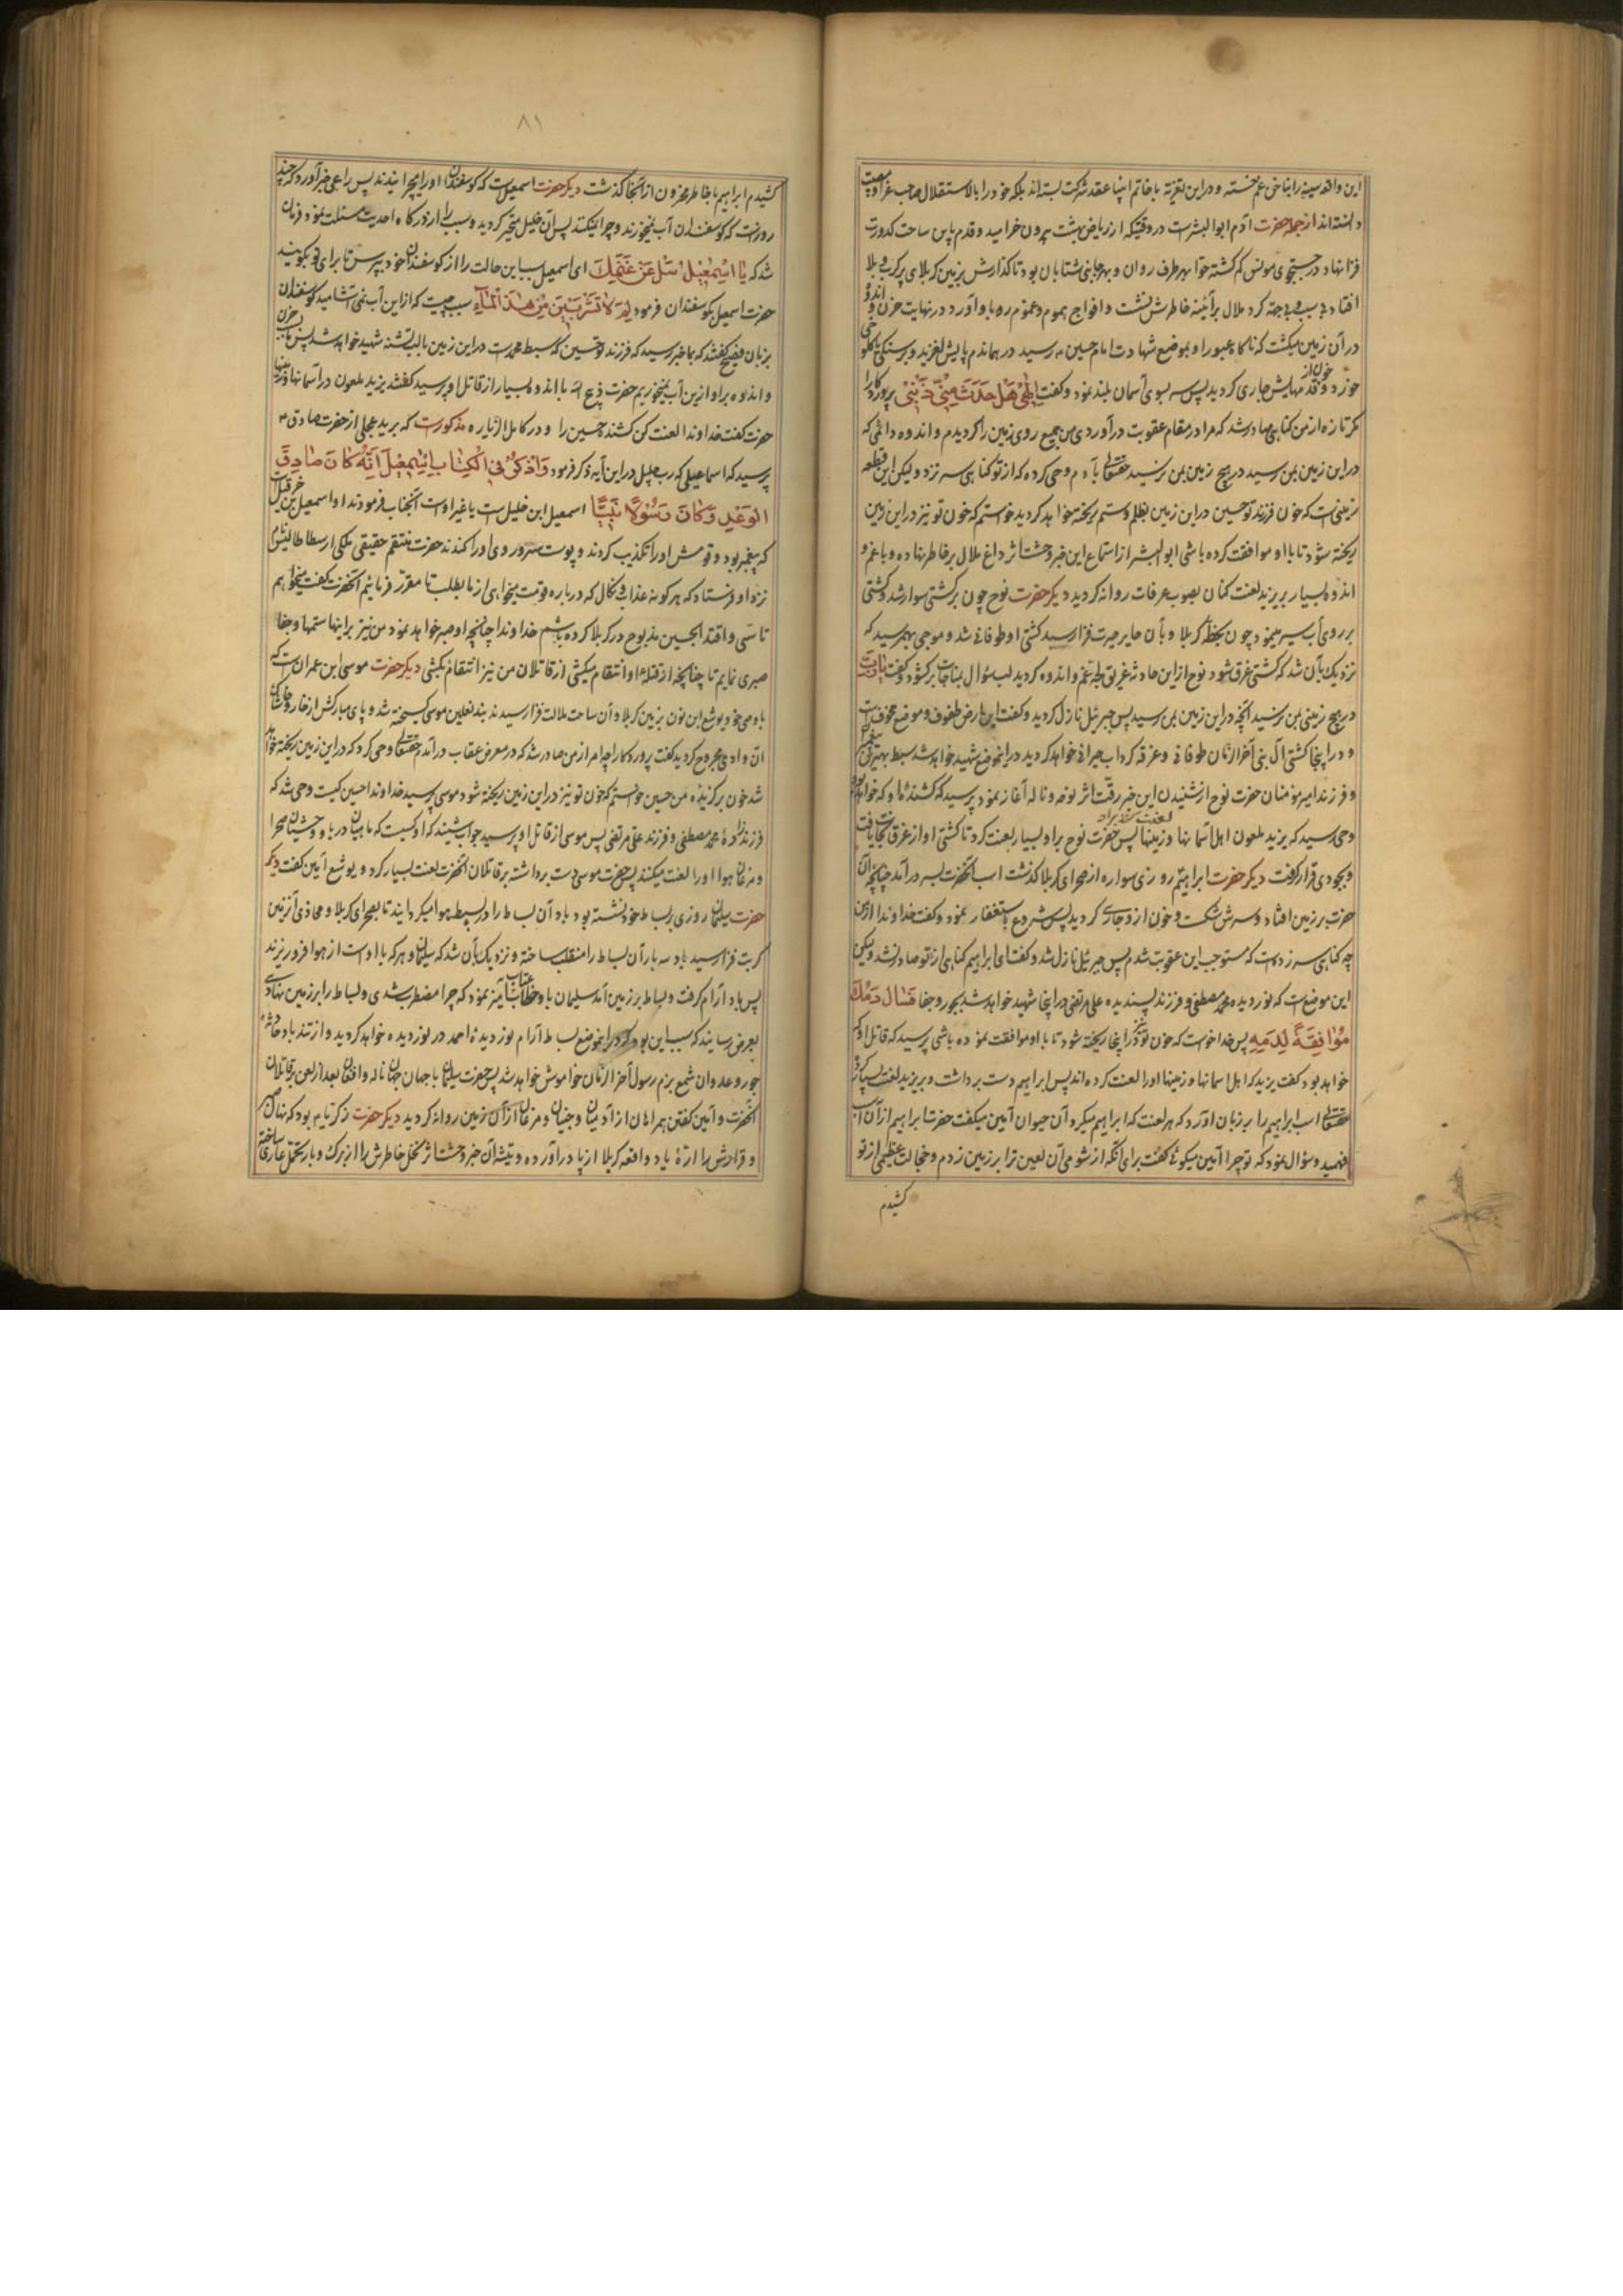 این واقعه سینه را بناخن غم خسته و در این تعزیه با خاتم انبیا عقد شرکت بسته اند بلکه خود را بالاستقلال صاحب عزا و مصیبت
دانسته اند از جمله حضرت آدم ابوالبشر است در وقتیکه از ریاض بهشت بیرون خرامید و قدم باین ساحت کدورت
فزا نهاد در جستجوی مونس کم کشته حوا بهر طرف روان و بهر جانبی شتابان بود تا کذارش بزمین کربلای پر کرب و بلا
افتاد بی سبب و بیجهة کرد ملال بر آئینه خاطرش نشست و افواج هموم و غموم رو باو آورد و در نهایت حزن و اندوه
در آن زمین میکشت که ناکاه عبور او بموضع شهادت امام حسین رسید در همانجا پایش لغزید و بر سنکی
خورد و خون از قدمهایش جاری کردید پس سر بسوی آسمان بلند نمود و کفت اِلٰهی هَل حَدَثَ مِنّی ذَنبٌ پرورکارا
مکر تازه از من کناهی صادر شد که مرا در مقام عقوبت درآوردی من جمیع روی زمین را کردیدم و اندوه و المی که
در این زمین بمن رسید در هیچ زمین بمن نرسید حقتعالی بآدم وحی کرد که از تو کناهی سر نزد ولیکن این قطعه
زمینی است که خون فرزند تو حسین در این زمین بظلم و ستم ریخته خواهد کردید خواستم که خون تو نیز در این زمین
ریخته شود تا با او موافقت کرده باشی ابوالبشر از استماع این خبر وحشت اثر داغ ملال بر خاطر نهاده و با غم و
اندوه بسیار بر یزید لعنت کنان بصوب عرفات روانه کردید دیکر حضرت نوح چون بر کشتی سوار شد و کشتی
بر روی آب سیر مینمود چون بخطه کربلا و بآن جای حیرت فزا رسید کشتی او طوفانی شد و موجی بهم رسید که
نزدیک بآن شد که کشتی غرق شود نوح از این حادثه غریق لجه غم و اندوه کردید لب سؤال بمناجات برکشود و کفت یا رَبّ
در هیچ زمینی بمن نرسید آنچه در این زمین بمن رسید پس جبرئیل نازل کردید و کفت این ارض طفوف و موضع مخوف است
و در اینجا کشتی آل نبی آخر الزمان طوفانی و غرقه کرداب حیرانی خواهد کردید در اینموضع شهید خواهد شد سبط بهترین پیغمبران
و فرزند امیر مؤمنان حضرت نوح از شنیدن این خبر رقت اثر نوحه و ناله آغاز نمود پرسید که کشنده او که خواهد بود
وحی رسید که یزید ملعون اهل آسمانها و زمینها پس حضرت نوح بر او بسیار لعنت کرد تا کشتی او از غرق نجات یافت
و بجودی قرار کرفت دیکر حضرت ابراهیم روزی سواره از صحرای کربلا کذشت اسب آنحضرت بسر درآمد چنانچه آن
حضرت بر زمین افتاد و سرش شکست و خون از او جاری کردید پس شروع باستغفار نمود و کفت خداوندا از من
چه کناهی سر زده است که مستوجب این عقوبت شدم پس جبرئیل نازل شد و کفت ای ابراهیم کناهی از تو صادر نشد ولیکن
این موضع است که نور دیده محمد مصطفی و فرزند پسندیده علی مرتضی در اینجا شهید خواهد شد بجور و جفا فَسالَ دَمُکَ
مُوافِقَةً لِدَمِهِ پس خدا خواست که خون تو نیز در اینجا ریخته شود تا با او موافقت نموده باشی پرسید که قاتل او که
خواهد بود کفت یزید که اهل آسمانها و زمینها او را لعنت کرده اند پس ابراهیم دست برداشت و بر یزید لعنت بسیار کرد
حقتعالی اسب ابراهیم را بر زبان آورد که هر لعنت که ابراهیم میکرد آن حیوان آمین میکفت حضرت ابراهیم از آن اسب
فهمید و سؤال نمود که تو چرا آمین میکوئی کفت برای آنکه از شومی آن لعین ترا بر زمین زدم و خجالت عظیمی از تو
کشیدم
۸۱
کشیدم ابراهیم با خاطر محزون از آنجا کذشت دیکر حضرت اسمعیل است که کوسفندان او را میچرانیدند پس راعی خبر آورد که چند
روز است که کوسفندان آب نمیخورند و چرا نمیکنند پس آن خلیل متحیر کردید و سبب را از درکاه احدیت مسئلت نمود فرمان
شد که یا اِسمٰعیلُ سَل عَن غَنَمِکَ ای اسمعیل سبب این حالت را از کوسفندان خود بپرس تا برای تو بکویند
حضرت اسمعیل بکوسفندان فرمود لِمَ لا تَشرَبینَ مِن هٰذَا المآءِ سبب چیست که از این آب نمی آشامید کوسفندان
بزبان فصیح کفتند که بما خبر رسید که فرزند تو حسین که سبط محمد است در این زمین با لب تشنه شهید خواهد شد پس ما بسبب حزن
و اندوه بر او از این آب نمیخوریم حضرت ذبیح الله با اندوه بسیار از قاتل او پرسید کفتند یزید ملعون در آسمانها و زمینها
حضرت کفت خداوندا لعنت کن کشنده حسین را و در کامل الزیاره مذکور است که برید عجلی از حضرت صادق
پرسید که اسماعیلی که رب جلیل در این آیه ذکر فرمود وَاذکُر فِی الکِتابِ اِسمٰعیلَ اِنَّهُ کانَ صادِقَ
الوَعدِ وَکانَ رَسولاً نَبِیّاً اسمعیل ابن خلیل است یا غیر او است آنجناب فرمودند او اسمعیل بن حزقیل
که پیغمبر بود و قومش او را تکذیب کردند و پوست سر و روی او را کندند حضرت منتقم حقیقی ملکی ارسطاطالیس نام
نزد او فرستاد که هر کونه عذاب و نکال که درباره قومت میخواهی از ما بطلب تا مقرر فرمائیم آنحضرت کفت میخواهم
تاسی و اقتدا بحسین مذبوح در کربلا کرده باشم خداوندا چنانچه او صبر خواهد نمود من نیز بر اینها ستمها و جفا
صبری نمایم تا چنانچه از قتله او انتقام میکشی از قاتلان من نیز انتقام بکشی دیکر حضرت موسی ابن عمران است که
با وصی خود یوشع ابن نون بزمین کربلا و آن ساحت ملالت فزا رسیدند بند نعلین موسی کسیخته شد و پای مبارکش از خار و خاشاک
آن وادی مجروح کردید کفت پرورکارا چه امر از من صادر شد که در معرض عقاب درآمدم حقتعالی وحی کرد که در این زمین ریخته خواهد
شد خون برکزیده من حسین خواستم که خون تو نیز در این زمین ریخته شود موسی پرسید خداوندا حسین کیست وحی شد که
فرزندزاده محمد مصطفی و فرزند علی مرتضی پس موسی از قاتل او پرسید جواب شنید که او کسیست که ماهیان دریا و وحشیان صحرا
و مرغان هوا او را لعنت میکنند پس حضرت موسی دست برداشته بر قاتلان آنحضرت لعنت بسیار کرد و یوشع آمین کفت دیکر
حضرت سلیمان روزی بر بساط خود نشسته بود باد آن بساط را در بسیط هوا میکردانید تا بصحرای کربلا و محاذی آنزمین
کربت فزا رسید باد سه بار آن بساط را منقلب ساخته و نزدیک بآن شد که سلیمان و هر که با او است از هوا فرو ریزند
پس باد آرام کرفت و بساط بر زمین آمد سلیمان باو خطاب عتاب آمیز نمود که چرا مضطرب شدی و بساط را بر زمین نهادی
بعرض رسانید که سبب این بود که در اینموضع بساط آرام نور دیده احمد در نوردیده خواهد کردید و از تندباد حادثه
جور و عدوان شمع بزم رسول آخر الزمان خاموش خواهد شد پس حضرت سلیمان با جهان جهان ناله و افغان بعد از لعن بر قاتلان
آنحضرت و آمین کفتن همراهان از آدمیان و جنیان و مرغان از آن زمین روانه کردید دیکر حضرت زکریا بود که نهال صبر
و قرارش را اره یاد واقعه کربلا از پا درآورده و تیشه آن خبر وحشت اثر نخل خاطرش را از برک و بار تحمل عاری ساخته